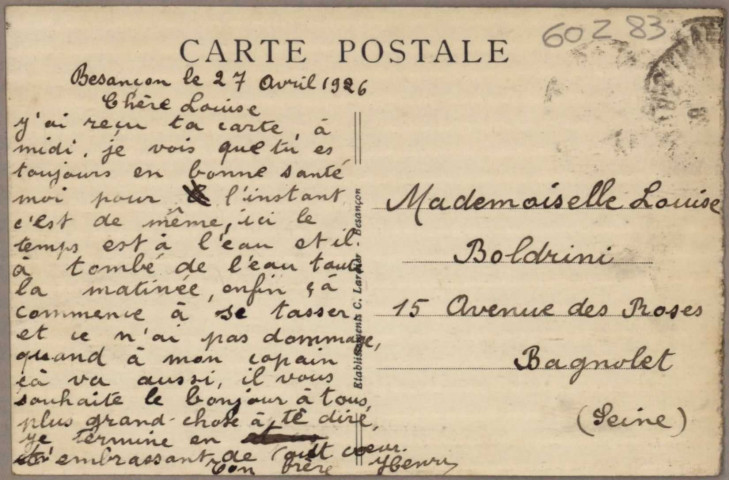 60Z 83
CARTE POSTALE
Besançon le 27 Avril 1926
Chère Louise
y'ai reçu ta carte, à
midi, je vois que tu es
toujours en bonne santé
moi pour l'instant
c'est de même, ici le
temps est à l'eau et il
à tombé de l'eau toute
la matinée, enfin çà
commence à se tasser
et ce n'ai pas dommage,
quand à mon copain
çà va aussi, il vous
souhaite le bonjour à tous,
plus grand-chose à te dire,
je termine en
t'embrassant de tout coeur.
Ton frère Henri
Etablissements C. Lardier - Besançon
Mademoiselle Louise
Boldrini
15 Avenue des Roses
Bagnolet
(Seine)